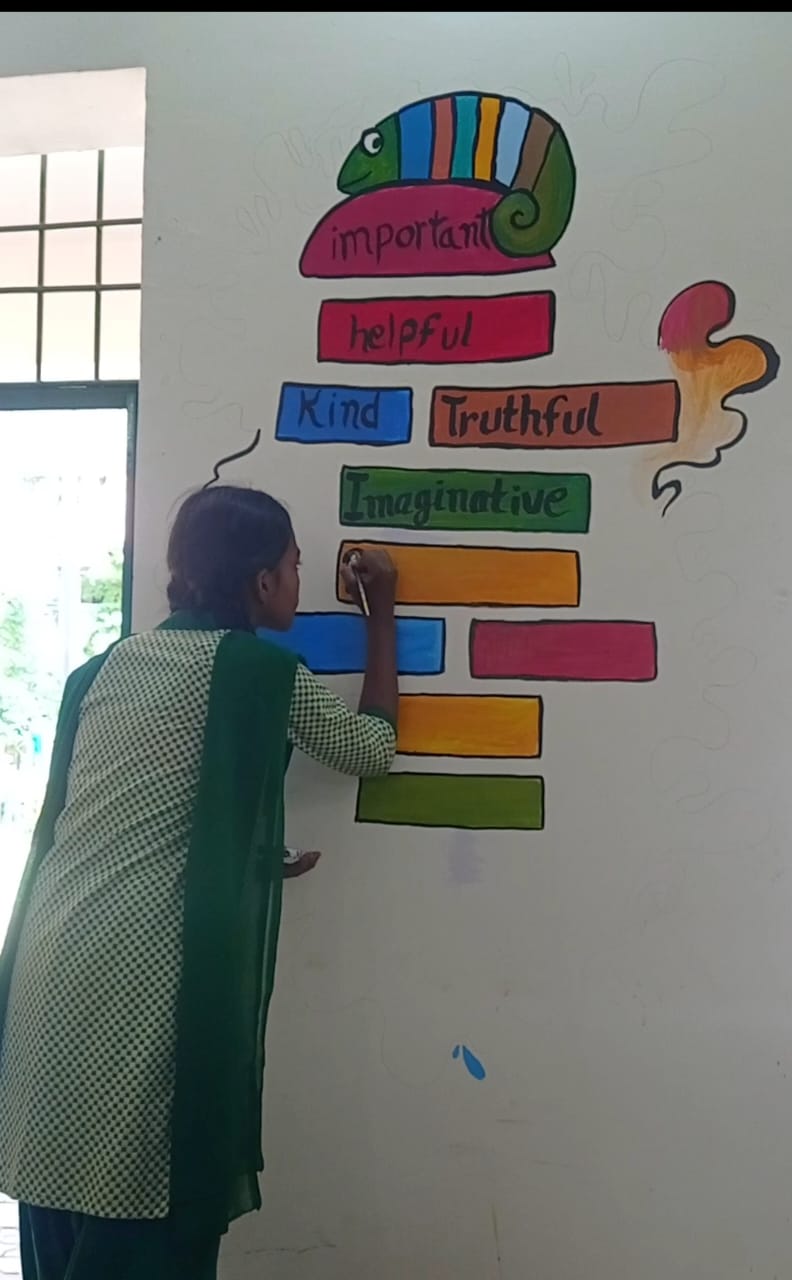 important
helpful
Kind Truthful
Imaginative